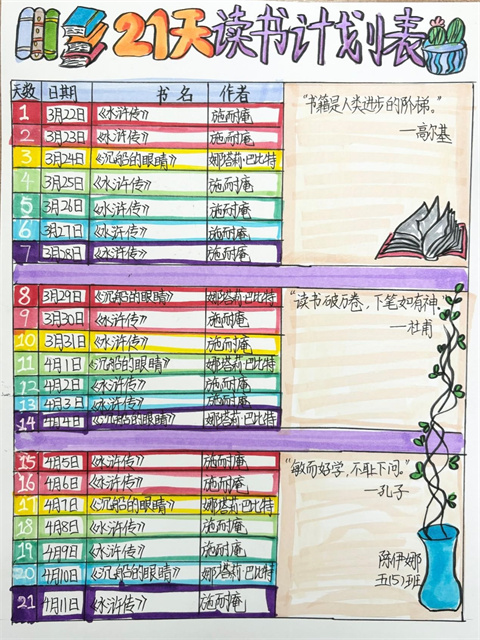 21天读书计划表
天数 日期 书名 作者
1 3月22日 《水浒传》 施耐庵
2 3月23日 《水浒传》 施耐庵
3 3月24日 《沉船的眼睛》 娜塔莉·巴比特
4 3月25日 《水浒传》 施耐庵
5 3月26日 《水浒传》 施耐庵
6 3月27日 《水浒传》 施耐庵
7 3月28日 《水浒传》 施耐庵
“书籍是人类进步的阶梯。”
—高尔基
8 3月29日 《沉船的眼睛》 娜塔莉·巴比特
9 3月30日 《水浒传》 施耐庵
10 3月31日 《水浒传》 施耐庵
11 4月1日 《沉船的眼睛》 娜塔莉·巴比特
12 4月2日 《水浒传》 施耐庵
13 4月3日 《水浒传》 施耐庵
14 4月4日 《沉船的眼睛》 娜塔莉·巴比特
“读书破万卷，下笔如有神
—杜甫
15 4月5日 《水浒传》 施耐庵
16 4月6日 《水浒传》 施耐庵
17 4月7日 《沉船的眼睛》 娜塔莉·巴比特
18 4月8日 《水浒传》 施耐庵
19 4月9日 《水浒传》 施耐庵
20 4月10日 《沉船的眼睛》 娜塔莉·巴比特
21 4月11日 《水浒传》 施耐庵
“敏而好学，不耻下问。”
—孔子
陈伊娜
五(5)班